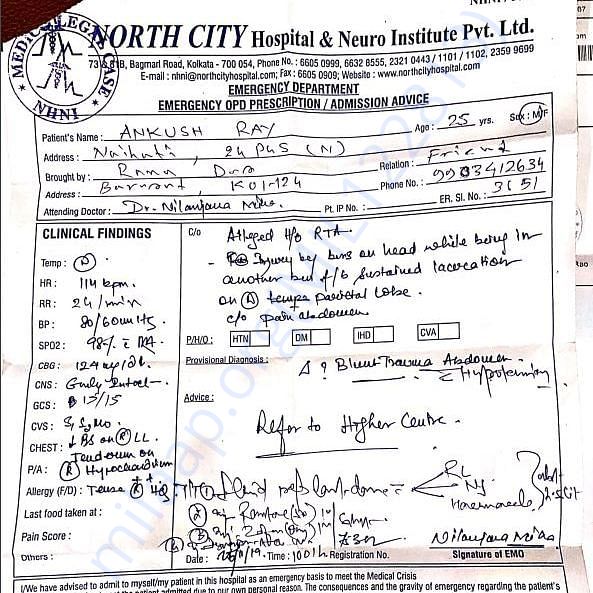 MEDICO LEGAL CASE
NHNI
NORTH CITY Hospital & Neuro Institute Pvt. Ltd.
73 & 81B, Bagmari Road, Kolkata - 700 054, Phone No. : 6605 0999, 6632 8555, 2321 0443 / 1101 / 1102, 2359 9699
E-mail : nhni@northcityhospital.com; Fax : 6605 0909; Website : www.northcityhospital.com
EMERGENCY DEPARTMENT
EMERGENCY OPD PRESCRIPTION / ADMISSION ADVICE
Patient's Name : ANKUSH RAY Age : 25 yrs. Sex : M/F
Address : Naihati, 24 PGS (N)
Brought by : Rana Das Relation : Friend
Address : Barasat, Kol-124 Phone No. : 9903412634
Attending Doctor : Dr. Nilanjana Pt. IP No. : ER. Sl. No. : 3651
CLINICAL FINDINGS
Temp : N
HR : 114 bpm.
RR : 24/min
BP : 80/60 mmHg
SPO2 : 98% RA
CBG : 124 mg/dL
CNS :
GCS : 15/15
CVS : S1 S2
CHEST : ↓ BS on R LL
P/A : Tenderness on R Hypochondrium
Allergy (F/D) :
Last food taken at :
Pain Score :
Others :
C/o Alleged H/o RTA.
- Injury by bus on head while being in
another bus f/b sustained laceration
on temporo parietal lobe.
c/o pain abdomen
P/H/O : HTN DM IHD CVA
Provisional Diagnosis : ? Blunt Trauma Abdomen.
Hypotension
Advice :
Refer to Higher Centre.
Fluid RL
NS
Haemaccele
Date : /19. Time : Registration No.
Signature of EMO
I/We have advised to admit to myself/my patient in this hospital as an emergency basis to meet the Medical Crisis
patient admitted due to our own personal reason. The consequences and the gravity of emergency regarding the patient's